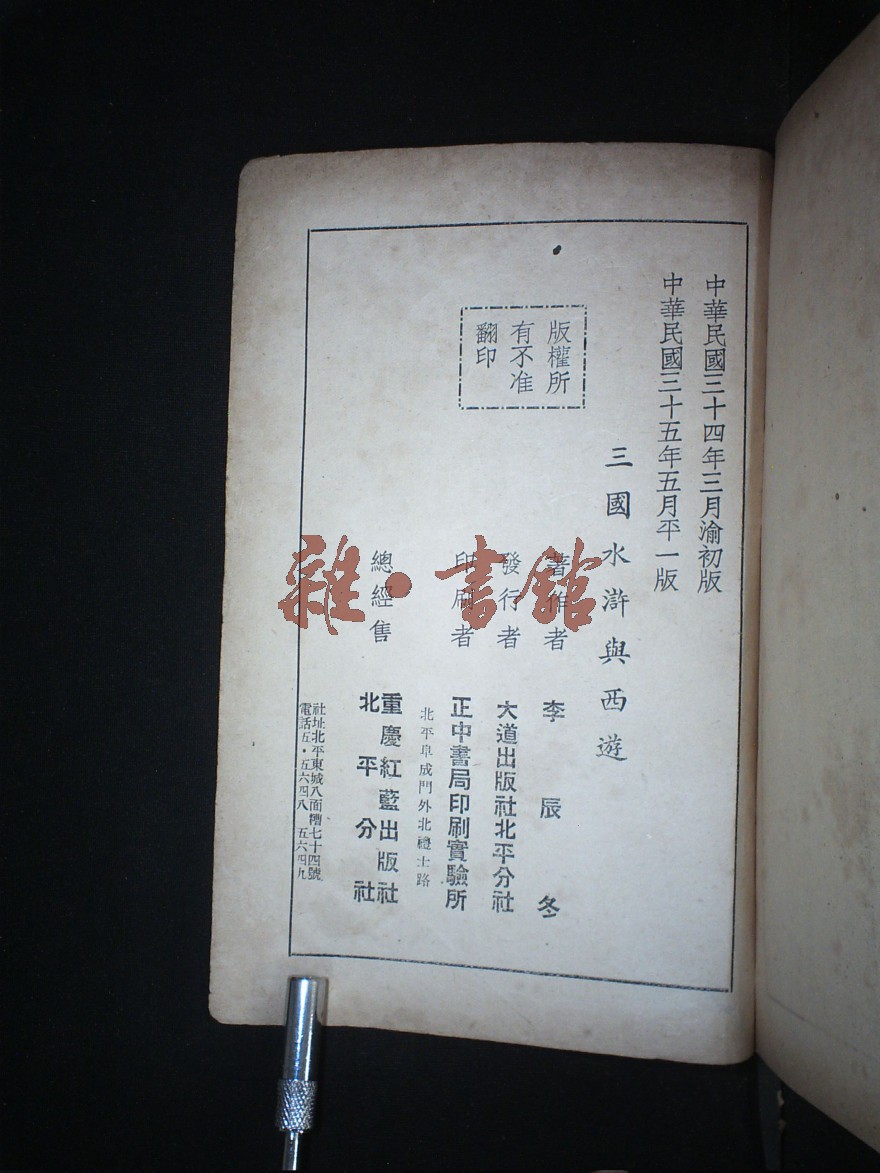 中華民國三十四年三月渝初版
中華民國三十五年五月平一版
三國水滸與西遊
版權所
有不准
翻印
著作者 李辰冬
發行者 大道出版社北平分社
印刷者 正中書局印刷實驗所
北平阜成門外北禮士路
總經售 重慶紅藍出版社
北平分社
社址北平東城八面槽七十四號
電話五・五六四八 五六四九
雜・書館